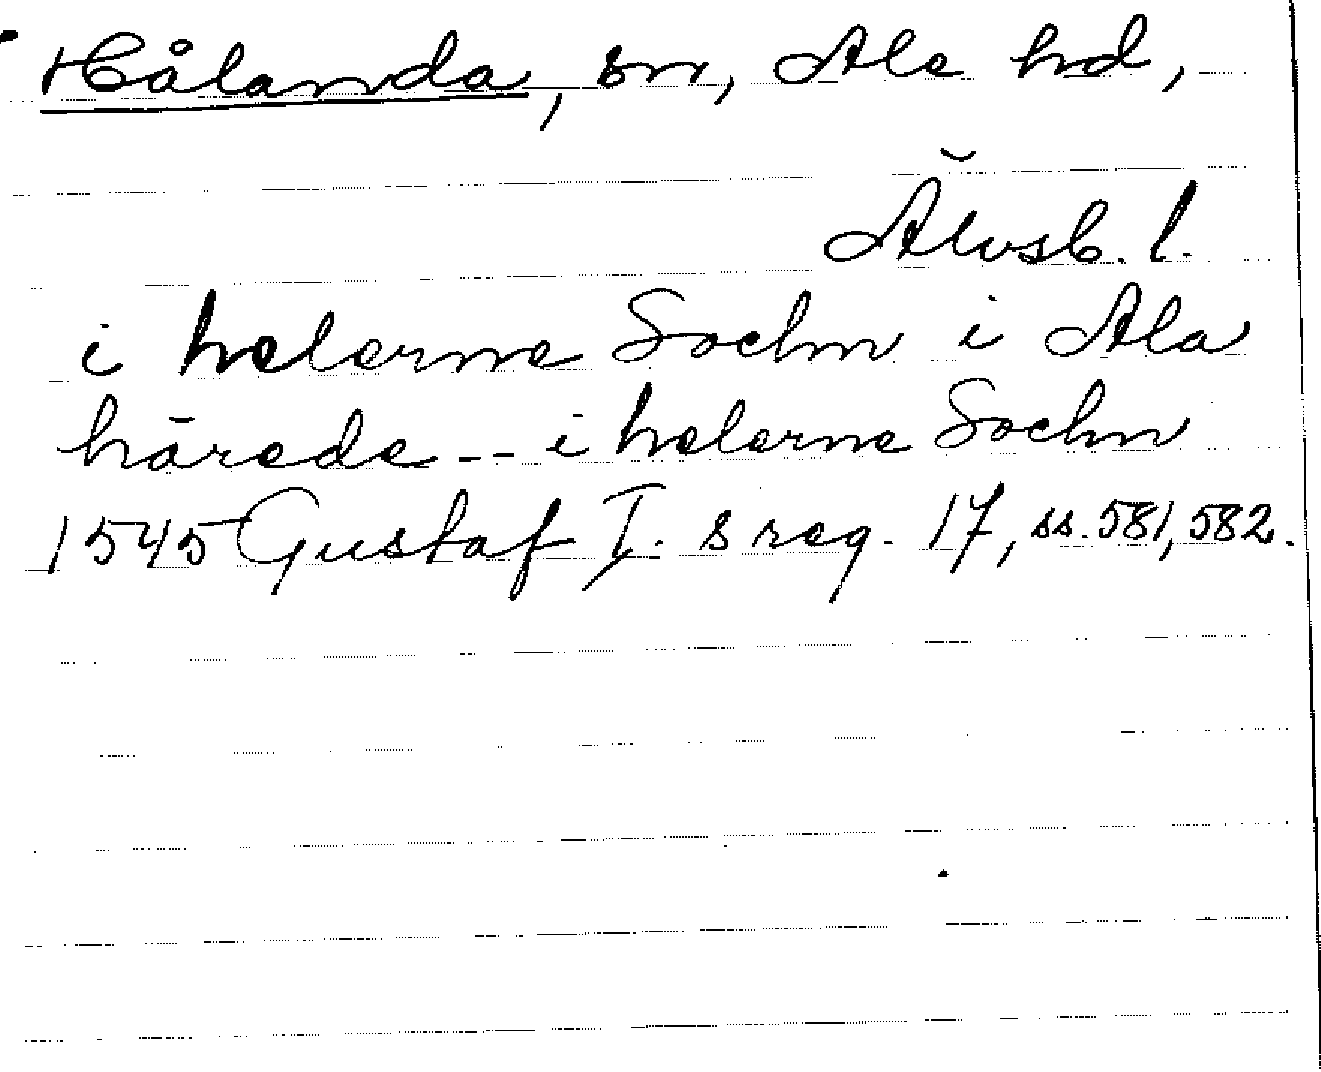 Hålanda, sn, Ale hd,
Älvsb. l.
i helerne Sochn i Ala
härede -- i helerne Sochn
1545 Gustaf I. s reg. 17, ss. 581, 582.